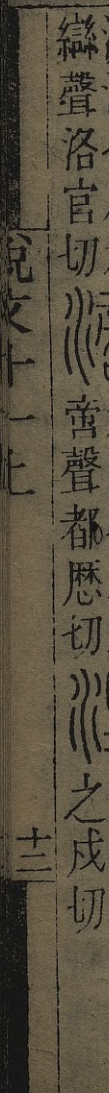 䜌聲洛官切啻聲都厯切之戍切
說文十一上
十二